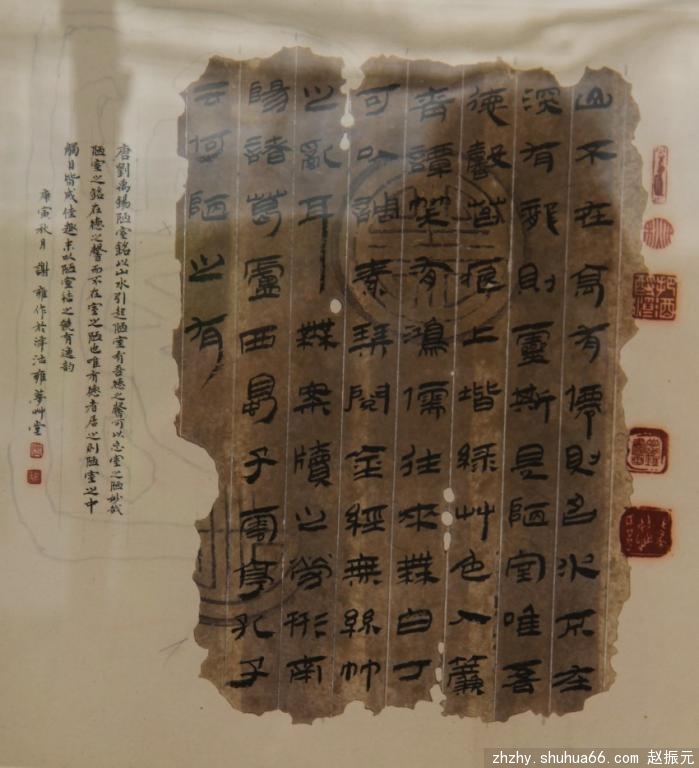 山不在高有僊則名水不在
深有龍則靈斯是陋室唯吾
德馨苔痕上堦綠艸色入簾
青譚笑有鴻儒往來無白丁
可以調素琴閱金經無絲竹
之亂耳無案牘之勞形南
陽諸葛廬西蜀子雲亭孔子
云何陋之有
唐劉禹錫陋室銘以山水引起陋室有吾德之馨可以忘室之陋妙哉
陋室之銘在德之馨而不在室之陋也唯有德者居之則陋室之中
觸目皆成佳趣末以陋室結之饒有遠韵
庚寅秋月謝雍作於津沽雍夢艸堂
zhzhy.shuhua66.com 赵振元